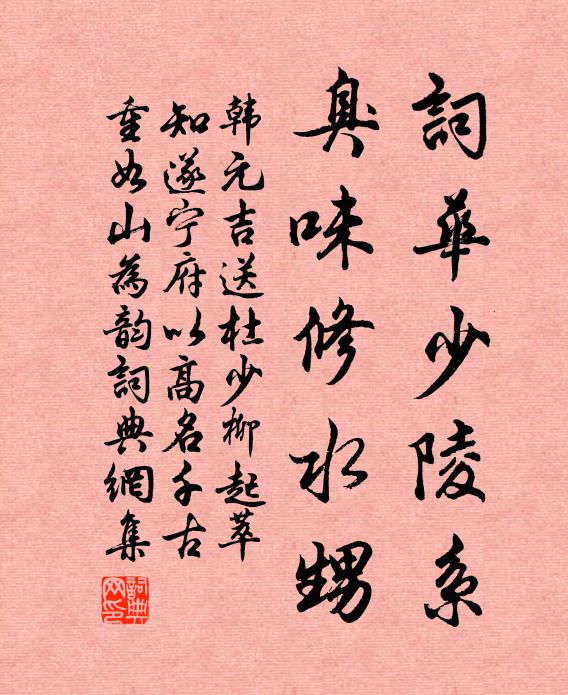 詞華少陵系
臭味修水甥
韩元吉送杜少柳起莘
知遂宁府以高名千古
重如山為韵詞典網集
詞典网印